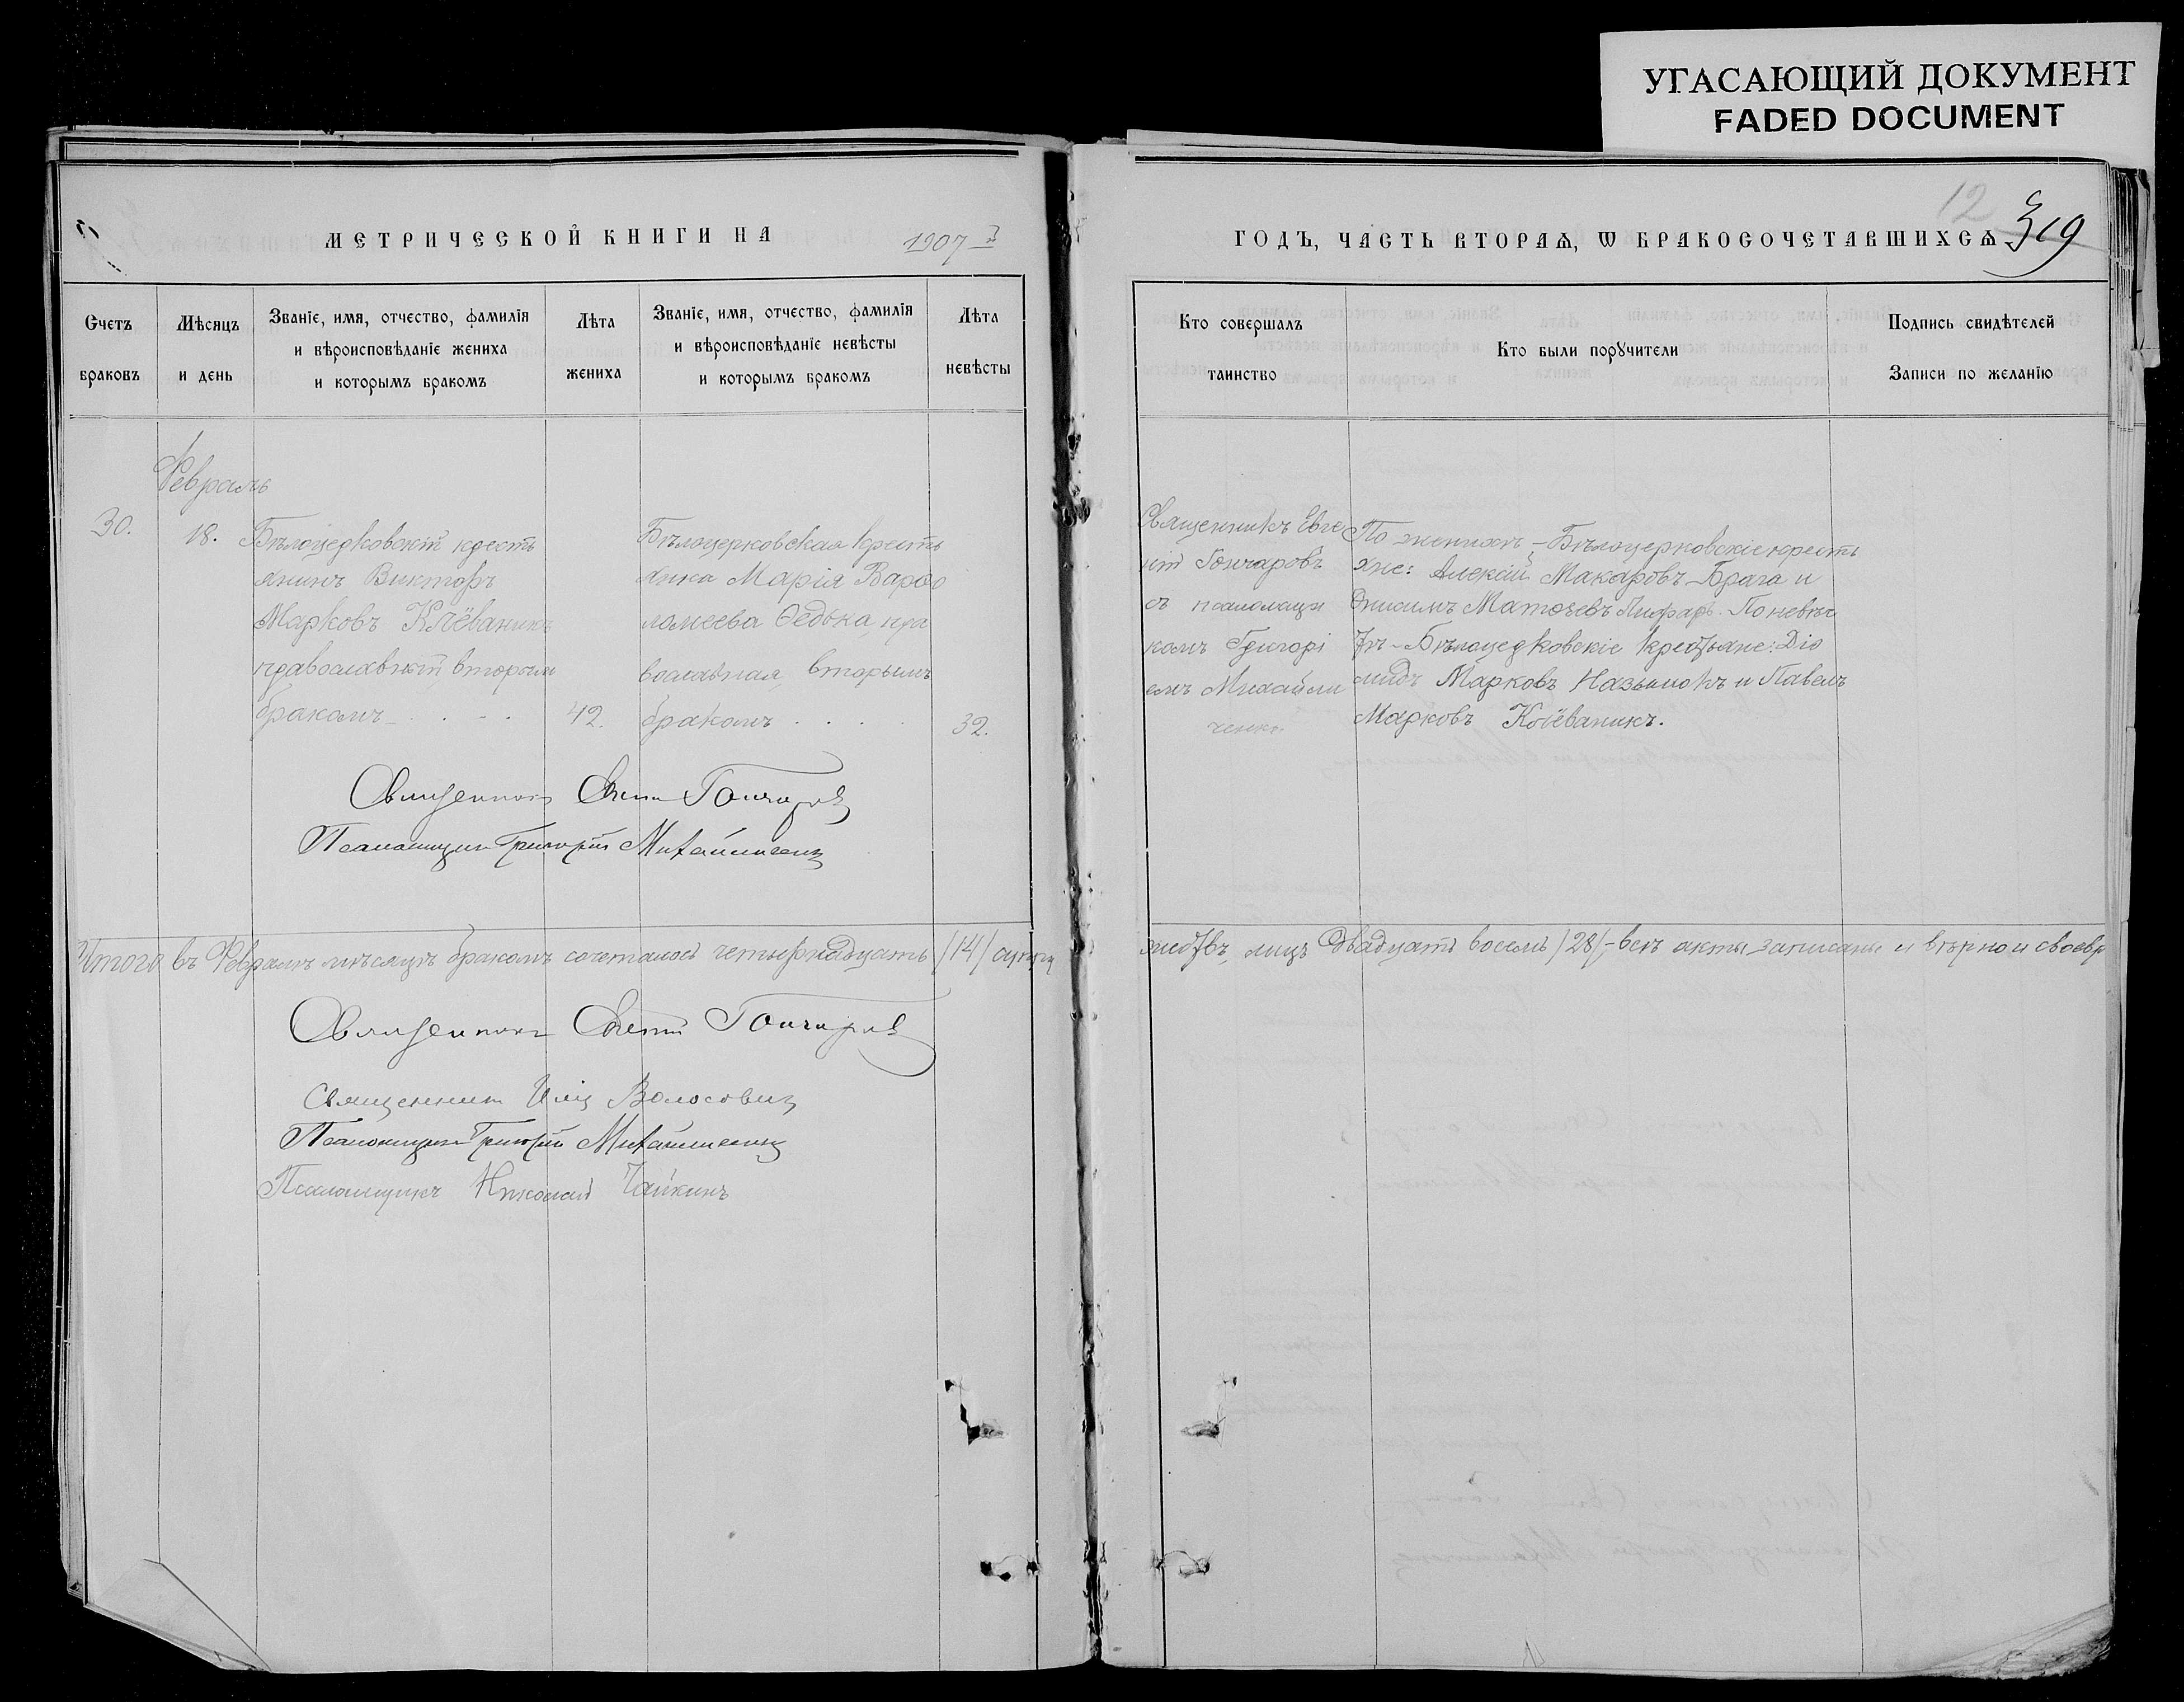 УГАСАЮЩИЙ ДОКУМЕНТ
FADED DOCUMENT
МЕТРИЧЕСКОЙ КНИГИ НА 1907
Счетъ браковъ
Мѣсяцъ и день
Званіе, имя, отчество, фамилія
и вѣроисповѣданіе жениха
и которымъ бракомъ
Лѣта жениха
Званіе, имя, отчество, фамилія
и вѣроисповѣданіе невѣсты
и которымъ бракомъ
Лѣта невѣсты
Февраль
30.
18.
Бѣлоцерковскій кресть
янинъ Викторъ
Марковъ
православный вторым
бракомъ
42.
Бѣлоцерковская кресть
янка Марія Варѳо
ломеева Ѳедька пра
вославная, вторымъ
бракомъ
32.
Священникъ Гончаровъ
Псаломщикъ Григорій Михайличенко
Итого въ Февралѣ мѣсяцѣ бракомъ сочеталось четырнадцать /14/
Священникъ Гончаровъ
Священникъ Волосовичъ
Псаломщикъ Григорій Михайличенко
Псаломщикъ Николай Чайкинъ
12
319
ГОДЪ, ЧАСТЬ ВТОРАѦ, Ѡ БРАКОСОЧЕТАВШИХСѦ
Кто совершалъ
таинство
Кто были порꙋчители
Подпись свидѣтелей
Записи по желанію
Священникъ Евге
ній Гончаровъ
съ псаломщи
комъ Григорі
емъ Михайли
ченко.
По женихѣ - Бѣлоцерковскіе кресть
яне: Алексій Макаровъ Брага и
Онисимъ Писарь. По невѣс
тѣ - Бѣлоцерковскіе крестьяне: Діо
мидъ Марковъ и Павелъ
Марковъ
лицъ Двадцать восемь /28/, - всѣ акты записаны и вѣрно и своевр